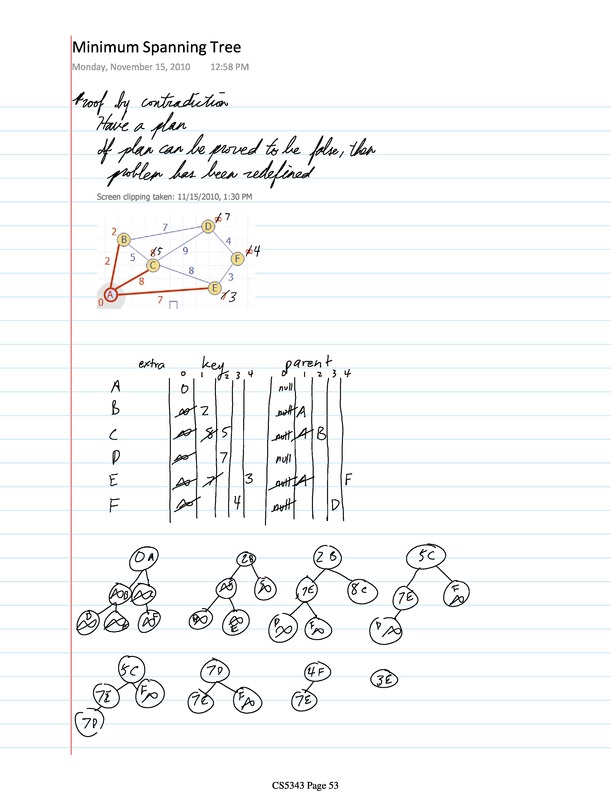 Minimum Spanning Tree
Monday, November 15, 2010 12:58 PM
Proof by contradiction
Have a plan
If plan can be proved to be false, then
problem has been redefined
Screen clipping taken: 11/15/2010, 1:30 PM
2 B 7 D 7
2 5 C 5 9 4 F 4
8 8 3
0 A 7 E 3
extra key parent
0 1 2 3 4 0 1 2 3 4
A 0 null
B ∞ 2 null A
C ∞ 8 5 null A B
D ∞ 7 null
E ∞ 7 3 null A F
F ∞ 4 null D
0A 2B 2B 5C
∞B 7E 8C 7E F∞
D∞ ∞F ∞E D∞ F∞ D∞
5C 7D 4F 3E
7E F∞ 7E F∞ 7E
7D
CS5343 Page 53